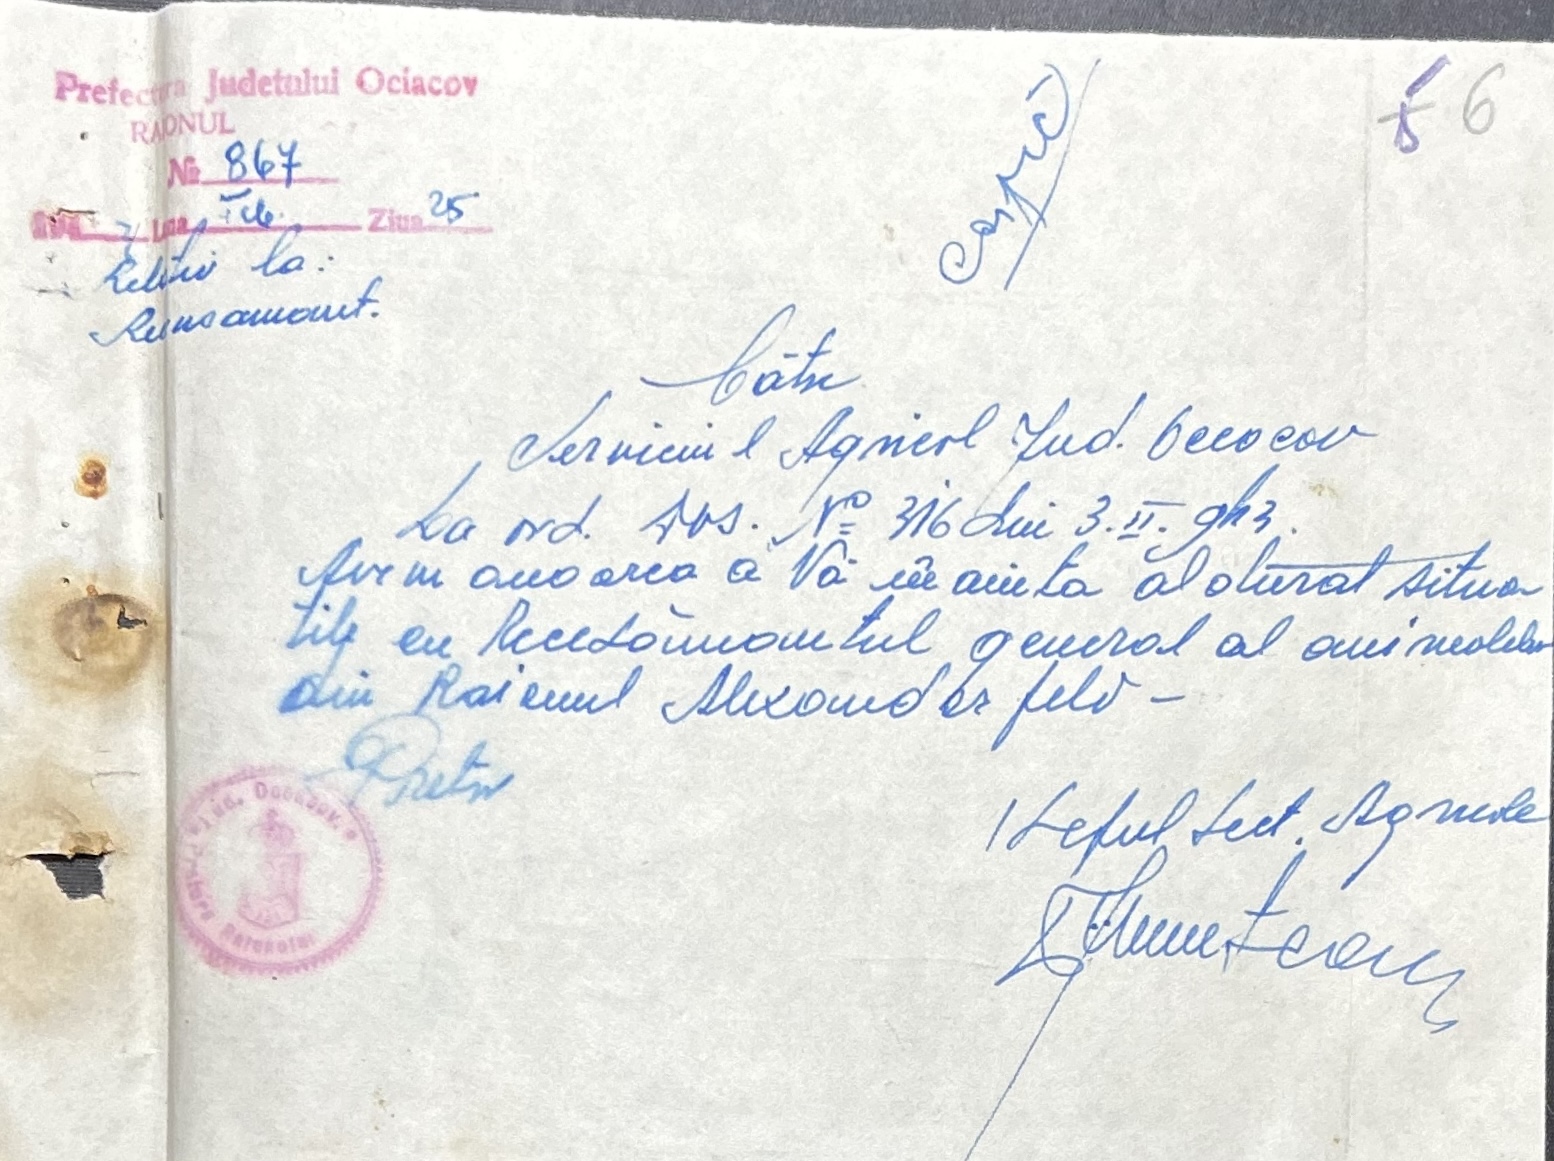 Prefectura Judetului Ociacov
RAIONUL
№ 867
Luna Feb. Ziua 25
la:
copie
6
Către
Serviciul Agricol Jud. Oceacov
La ord. Dvs. No 316 din 3.II.943.
Avem onoarea a Vă înainta alăturat situa
tile cu Recesământul general al animalelor
din Raionul Alexanderfeld -
Pretor
Șeful Sect. Agricole